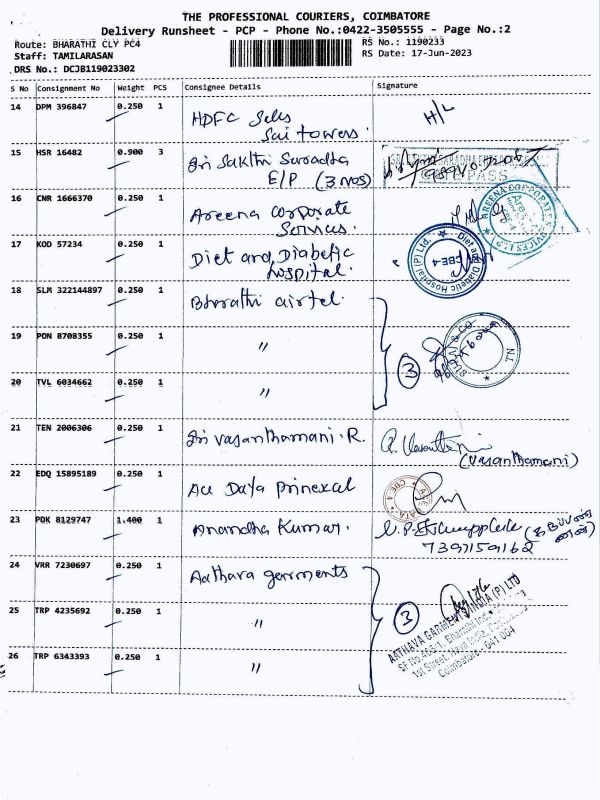 THE PROFESSIONAL COURIERS, COIMBATORE
Delivery Runsheet - PCP - Phone No.:0422-3505555 - Page No.:2
Route: BHARATHI CLY PC4
RS No.: 1190233
Staff: TAMILARASAN
RS Date: 17-Jun-2023
DRS No.: DCJB119023302
S No Consignment No Weight PCS Consignee Details Signature
14 DPM 396847 0.250 1 HDFC Sales H/L
Sai towers.
15 HSR 16482 0.900 3 Sri Sakthi Saradha
E/P (3 NOS)
16 CNR 1666370 0.250 1 Areena Corporate
Services.
AREENA CORPORATE SERVICES
17 KOD 57234 0.250 1 Diet and Diabetic
hospital.
Diet and Diabetic Hospital (P) Ltd. CBE-4
18 SLM 322144897 0.250 1 Bharathi airtel.
19 PON 8708355 0.250 1 "
3
20 TVL 6034662 0.250 1 "
21 TEN 2006306 0.250 1 Sri Vasanthamani. R.
(Vasanthamani)
22 EDQ 15895189 0.250 1 Ace Data
CBE-4
23 PDK 8129747 1.400 1 Anandha Kumar.
7397159162
24 VRR 7230697 0.250 1 Aathava garments
25 TRP 4235692 0.250 1 "
3
ARTHAVA GARMENTS INDIA (P) LTD
1st Street,
Coimbatore - 641 004
26 TRP 6343393 0.250 1 "